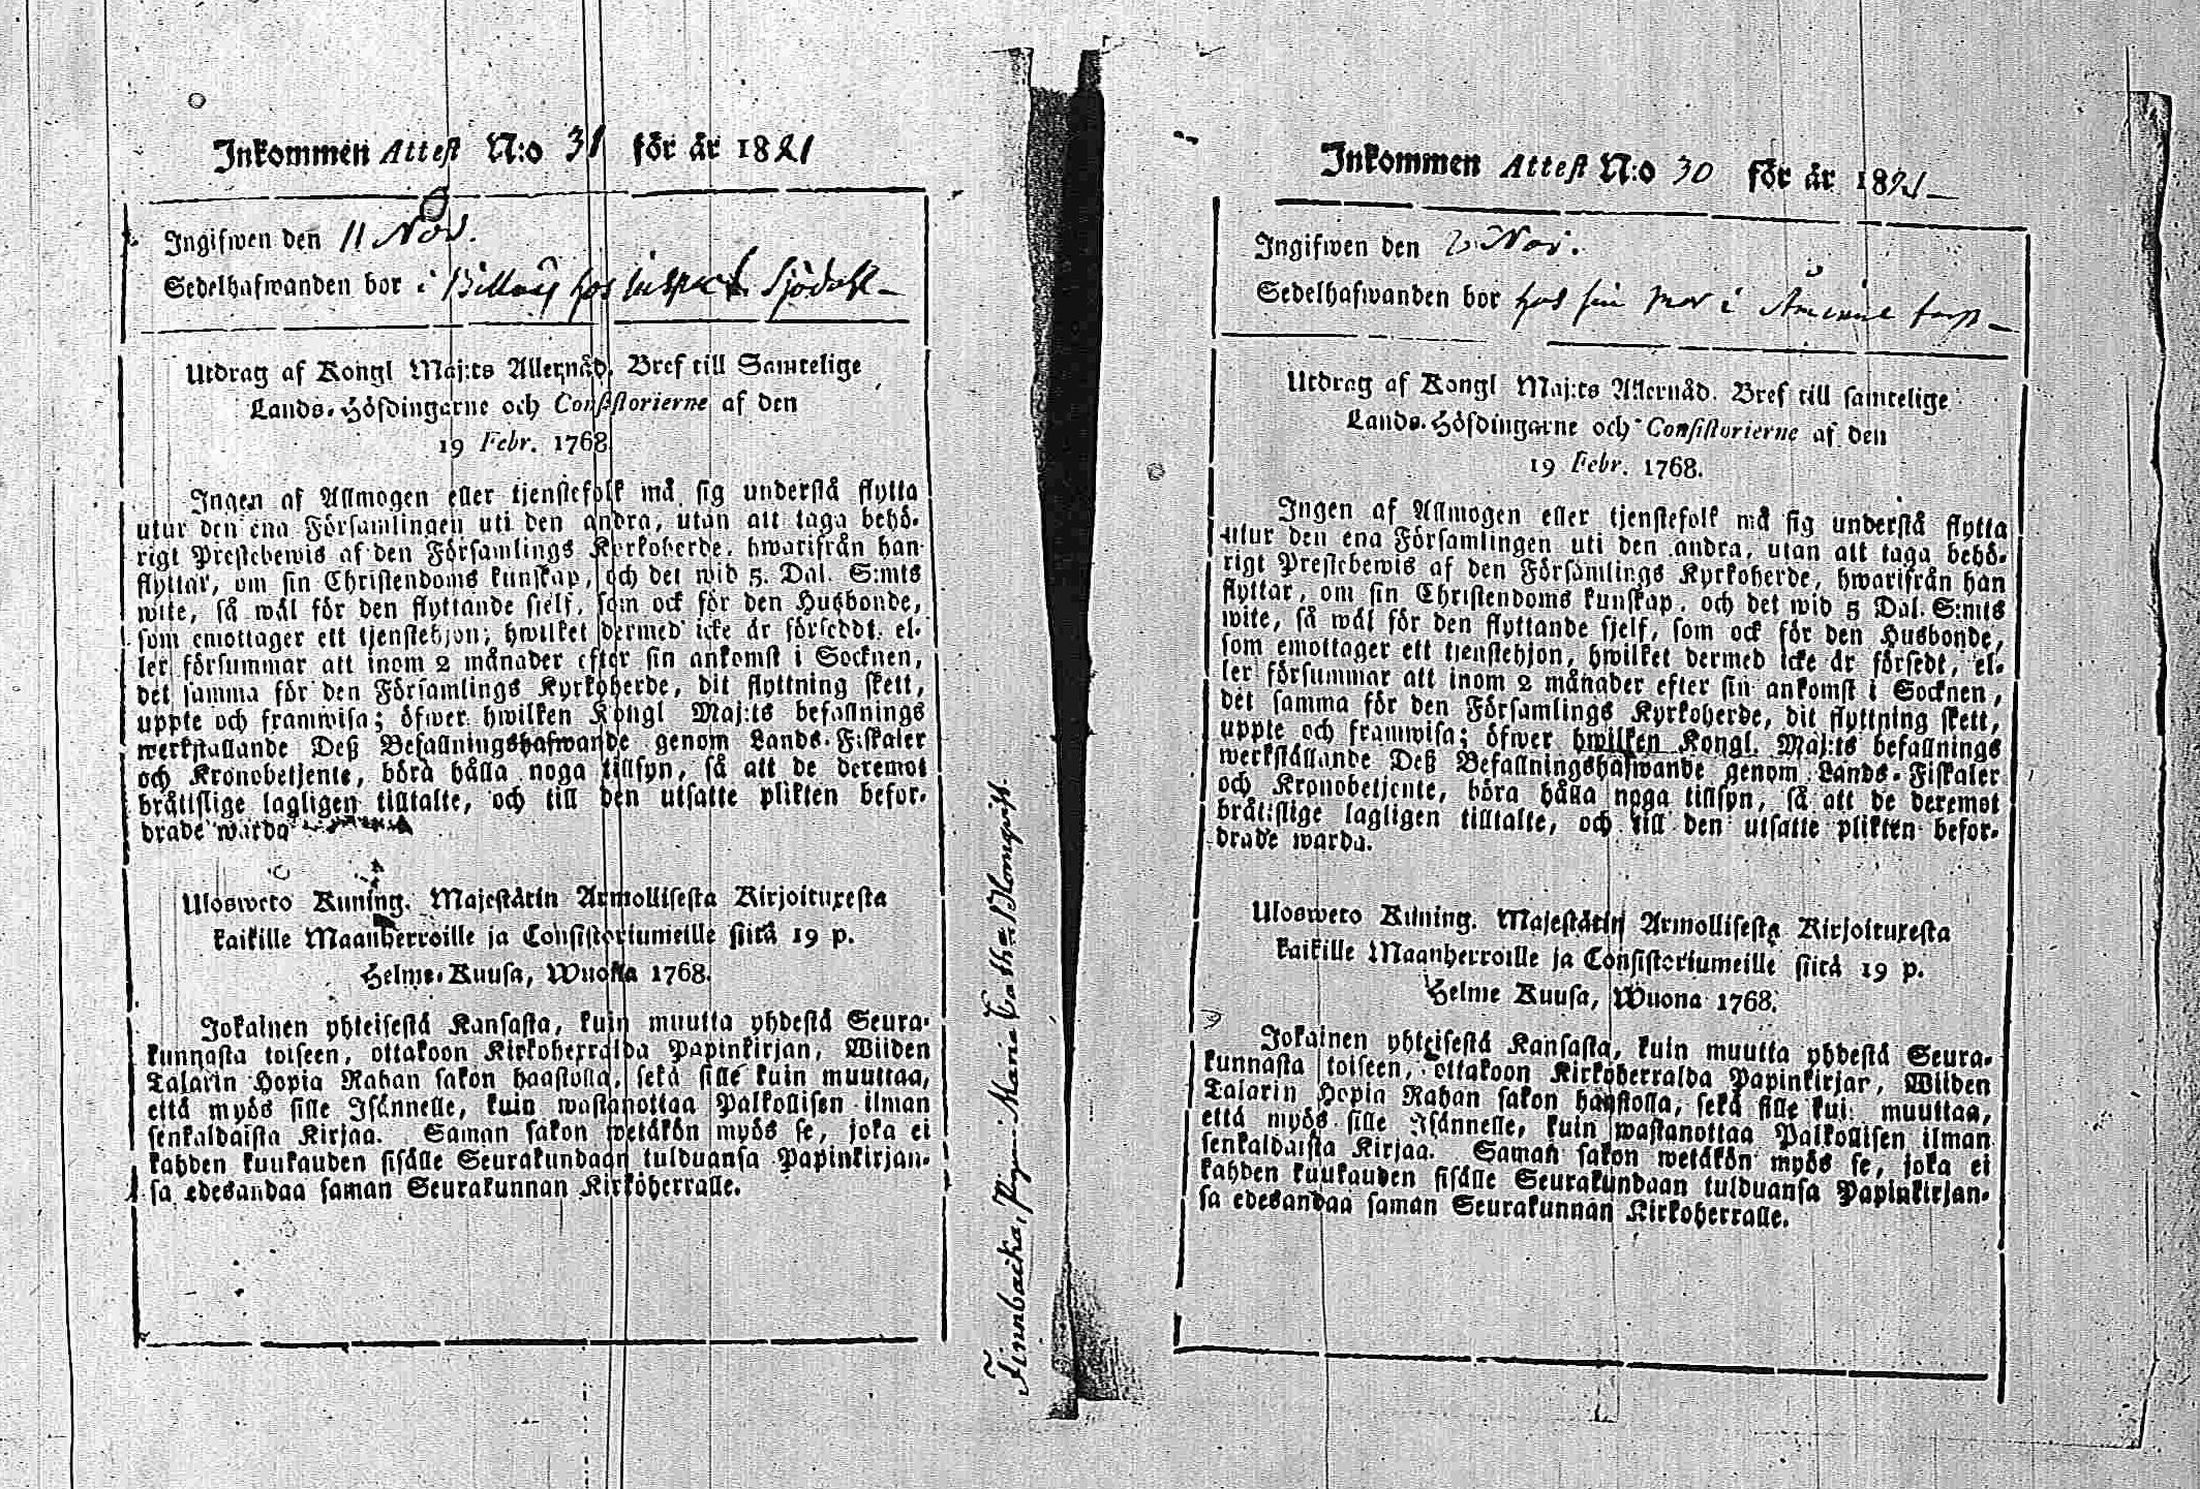 Inkommen Attest N:o 31 för år 1821
Ingifwen den 11 Nov.
Sedelhafwanden bor i Billnäs hos Inspect. Sjödahl
Utdrag af Kongl Maj:ts Allernåd. Bref till Samtelige
Lands-Höfdingarne och Consistorierne af den
19 Febr. 1768
Ingen af Allmogen eller tjenstefolk må sig understå flytta
utur den ena Församlingen uti den andra, utan att taga behö-
rigt Prestebewis af den Församlings Kyrkoherde, hwarifrån han
flyttar, om sin Christendoms kunskap, och det wid 5. Dal. S:mts
wite, så wäl för den flyttande sjelf, som ock för den Husbonde,
som emottager ett tjenstehjon, hwilket dermed icke är försedt, el-
ler försummar att inom 2 månader efter sin ankomst i Socknen,
det samma för den Församlings Kyrkoherde, dit flyttning skett,
uppte och framwisa; öfwer hwilken Kongl Maj:ts befallnings
werkställande Deß Befallningshafwande genom Lands-Fiskaler
och Kronobetjente, böra hålla noga tillsyn, så att de deremot
bråttslige lagligen tilltalte, och till den utsatte plikten befor-
drade warda
Ulosweto Kuning. Majestätin Armollisesta Kirjoituxesta
kaikille Maanherroille ja Consistoriumeille siitä 19 p.
Helme-Kuusa, Wuonna 1768.
Jokainen yhteisestä Kansasta, kuin muutta yhdestä Seura-
kunnasta toiseen, ottakoon Kirkoherralda Papinkirjan, Wiiden
Talarin Hopia Rahan sakon haastolla, sekä sille kuin muuttaa,
että myös sille Isännelle, kuin wastanottaa Palkollisen ilman
senkaldaista Kirjaa. Saman sakon wetäkön myös se, joka ei
kahden kuukauden sisälle Seurakundaan tulduansa Papinkirjan-
sa edesandaa saman Seurakunnan Kirkoherralle.
Finnbacka, Pigan Maria Catha Blomqvist.
Inkommen Attest N:o 30 för år 1821
Ingifwen den 2 Nov.
Sedelhafwanden bor hos sin mor i Åminne torp
Utdrag af Kongl Maj:ts Allernåd. Bref till samtelige
Lands-Höfdingarne och Consistorierne af den
19 Febr. 1768.
Ingen af Allmogen eller tjenstefolk må sig understå flytta
utur den ena Församlingen uti den andra, utan att taga behö-
rigt Prestebewis af den Församlings Kyrkoherde, hwarifrån han
flyttar, om sin Christendoms kunskap, och det wid 5 Dal. S:mts
wite, så wäl för den flyttande sjelf, som ock för den Husbonde,
som emottager ett tjenstehjon, hwilket dermed icke är försedt, el-
ler försummar att inom 2 månader efter sin ankomst i Socknen,
det samma för den Församlings Kyrkoherde, dit flyttning skett,
uppte och framwisa; öfwer hwilken Kongl. Maj:ts befallnings
werkställande Deß Befallningshafwande genom Lands-Fiskaler
och Kronobetjente, böra hålla noga tillsyn, så att de deremot
bråttslige lagligen tilltalte, och till den utsatte plikten befor-
drade warda.
Ulosweto Kuning. Majestätin Armollisesta Kirjoituxesta
kaikille Maanherroille ja Consistoriumeille siitä 19 p.
Helme Kuusa, Wuona 1768.
Jokainen yhteisestä Kansasta, kuin muutta yhdestä Seura-
kunnasta toiseen, ottakoon Kirkoherralda Papinkirjan, Wiiden
Talarin Hopia Rahan sakon haastolla, sekä sille kuin muuttaa,
että myös sille Isännelle, kuin wastanottaa Palkollisen ilman
senkaldaista Kirjaa. Saman sakon wetäkön myös se, joka ei
kahden kuukauden sisälle Seurakundaan tulduansa Papinkirjan-
sa edesandaa saman Seurakunnan Kirkoherralle.